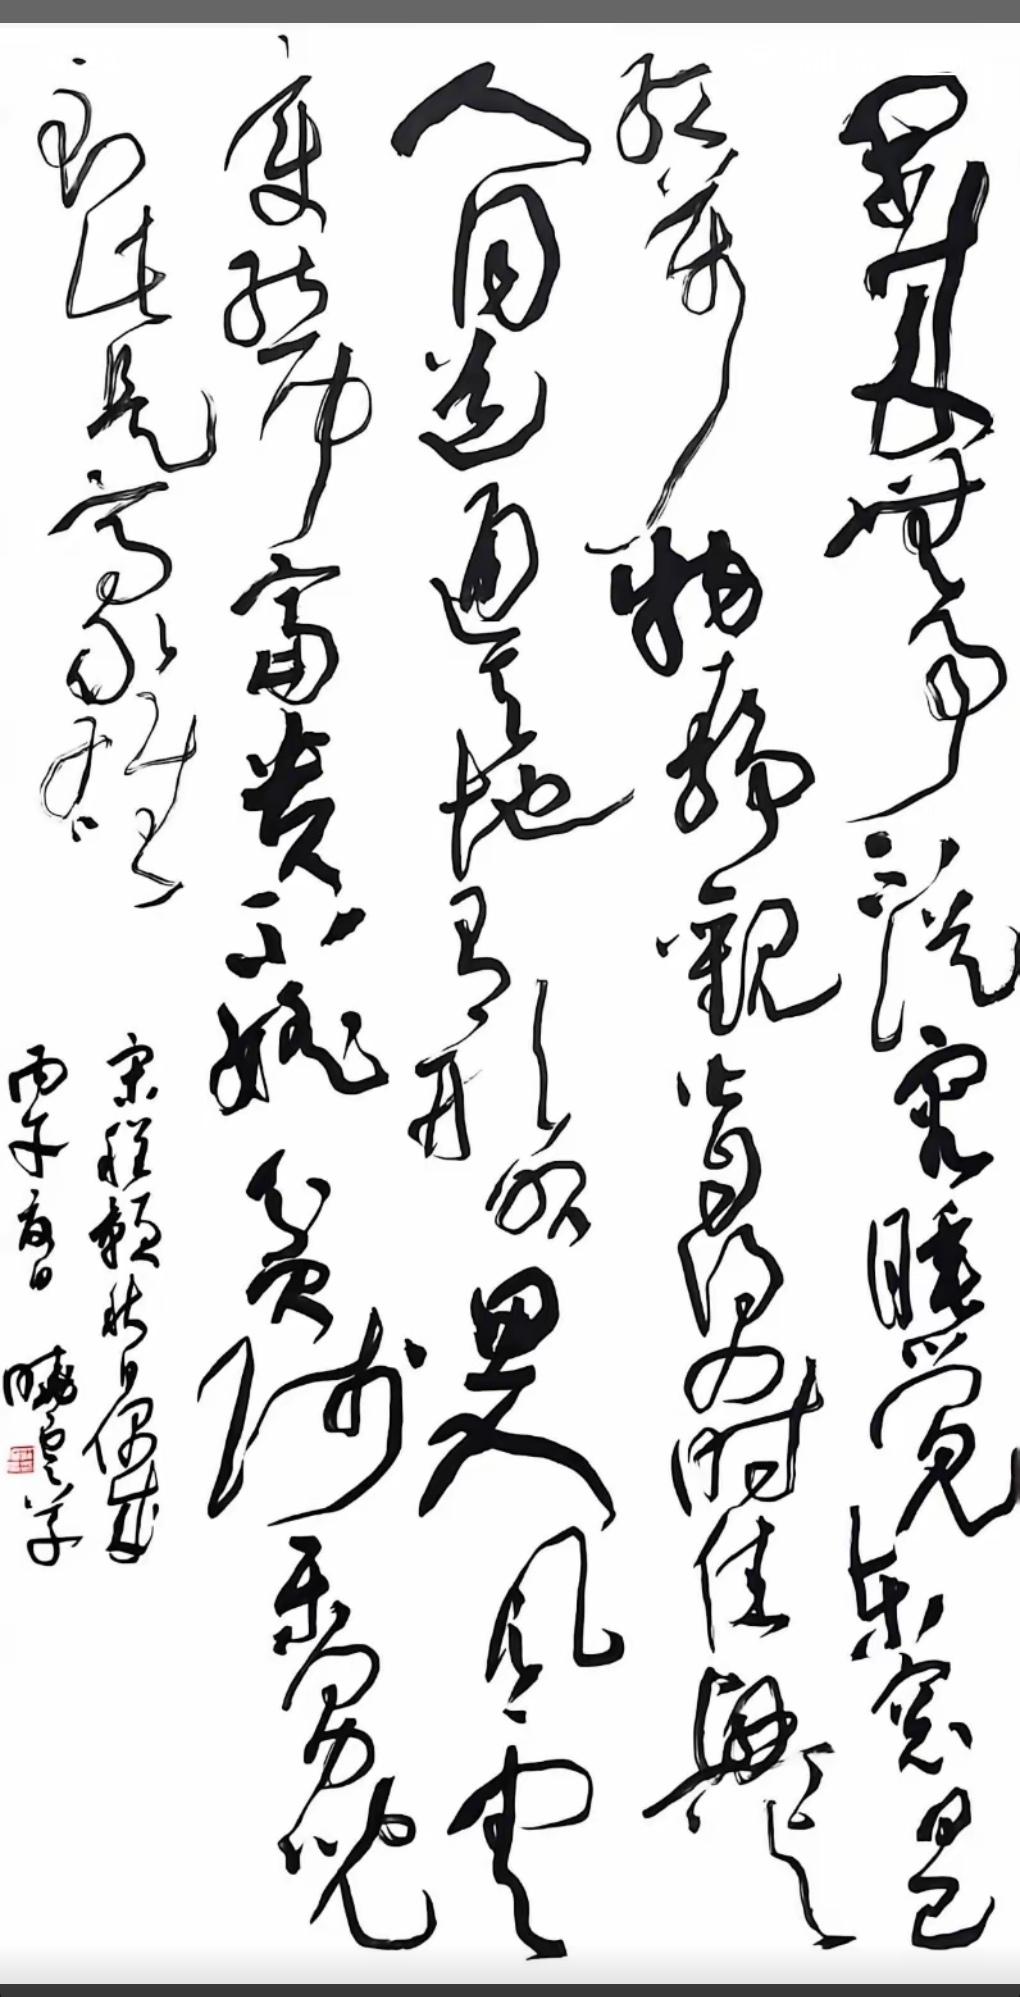 閒来無事不從容睡覺東窓日已
紅萬物靜觀皆自得四時佳興与
人同道通天地有形外思入風雲
變態中富貴不婬貧賤樂男兒
到此是豪雄
宋程顥秋日偶成
丙午夏日 曉雲草